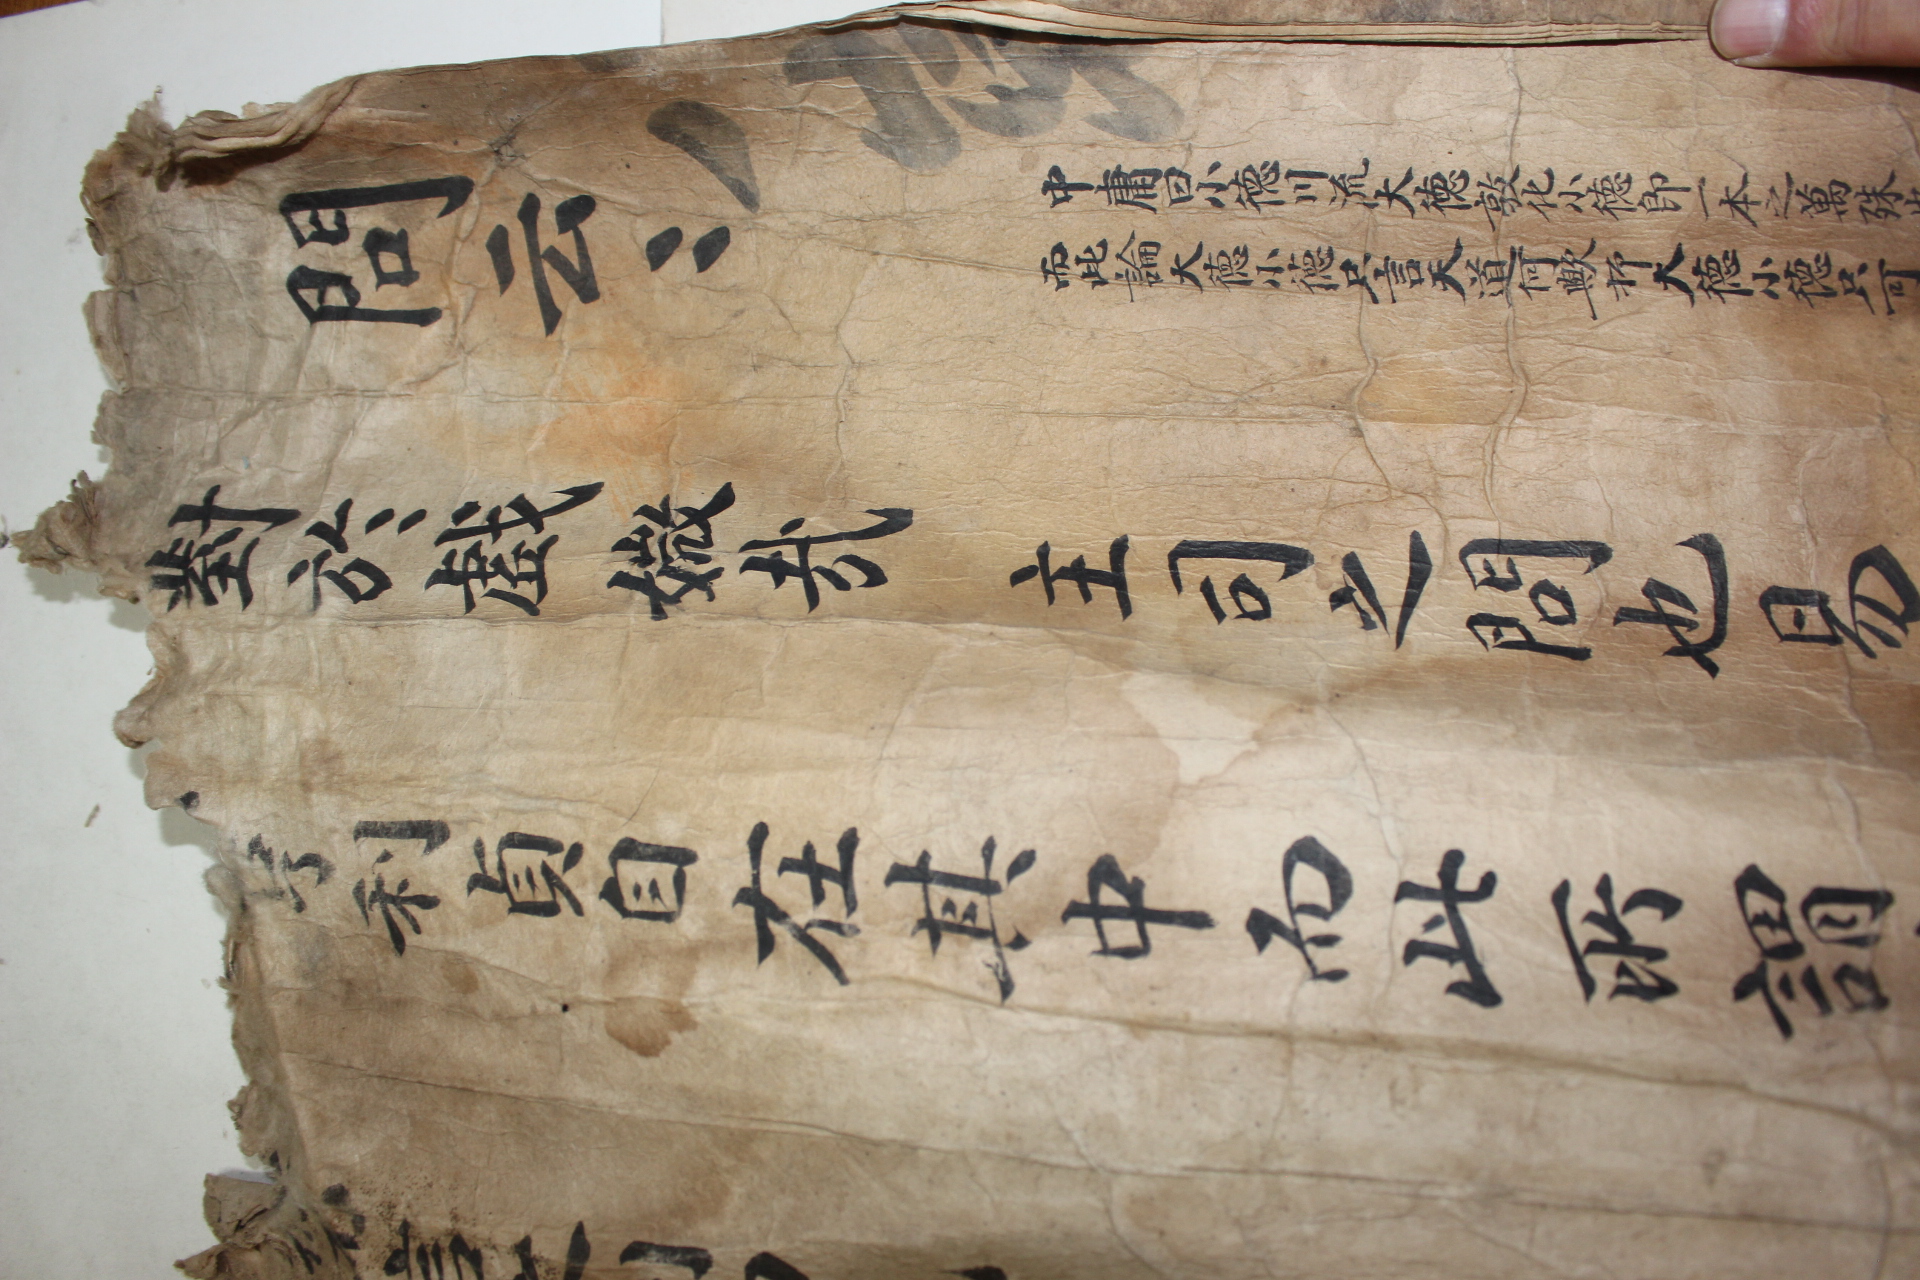 問云〻
中庸曰小德川流大德敦化小德卽一本之萬殊也
而此論大德小德只言天道何歟抑大德小德只可
對於戱媺哉 主司之問也易
亨利貞自在其中而此所謂
言之